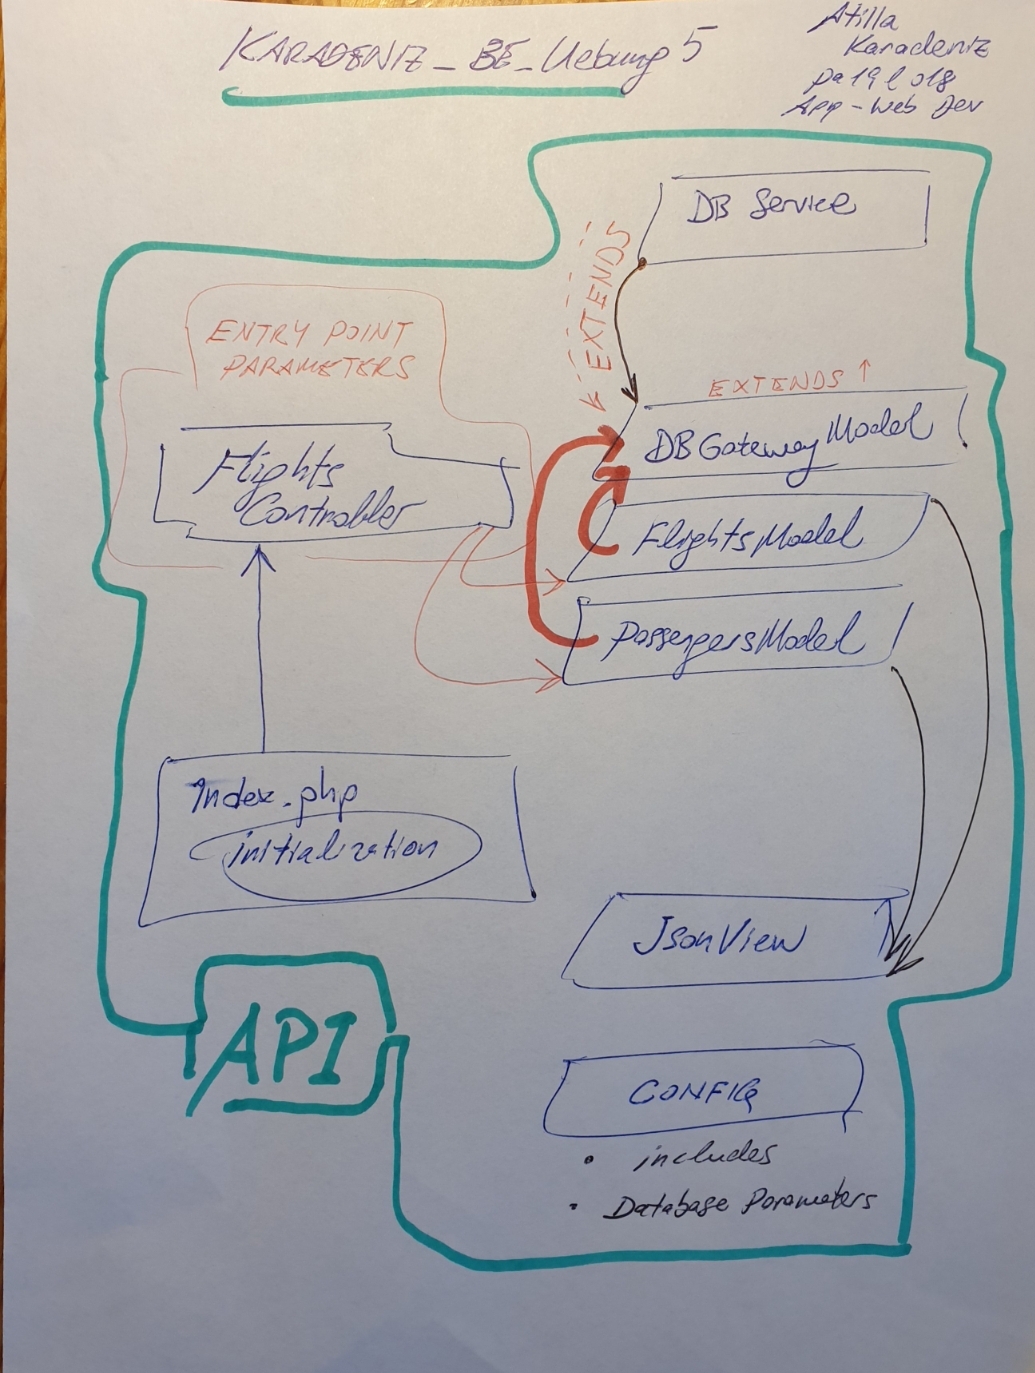 KARADENIZ_BE_Uebung 5
Atilla
Karadeniz
pa19l018
App-Web Dev
DB Service
EXTENDS
ENTRY POINT
PARAMETERS
EXTENDS ↑
DBGatewayModel
Flights
Controller
FlightsModel
PassengersModel
Index.php
initialization
JsonView
API
CONFIG
• includes
• Database Parameters